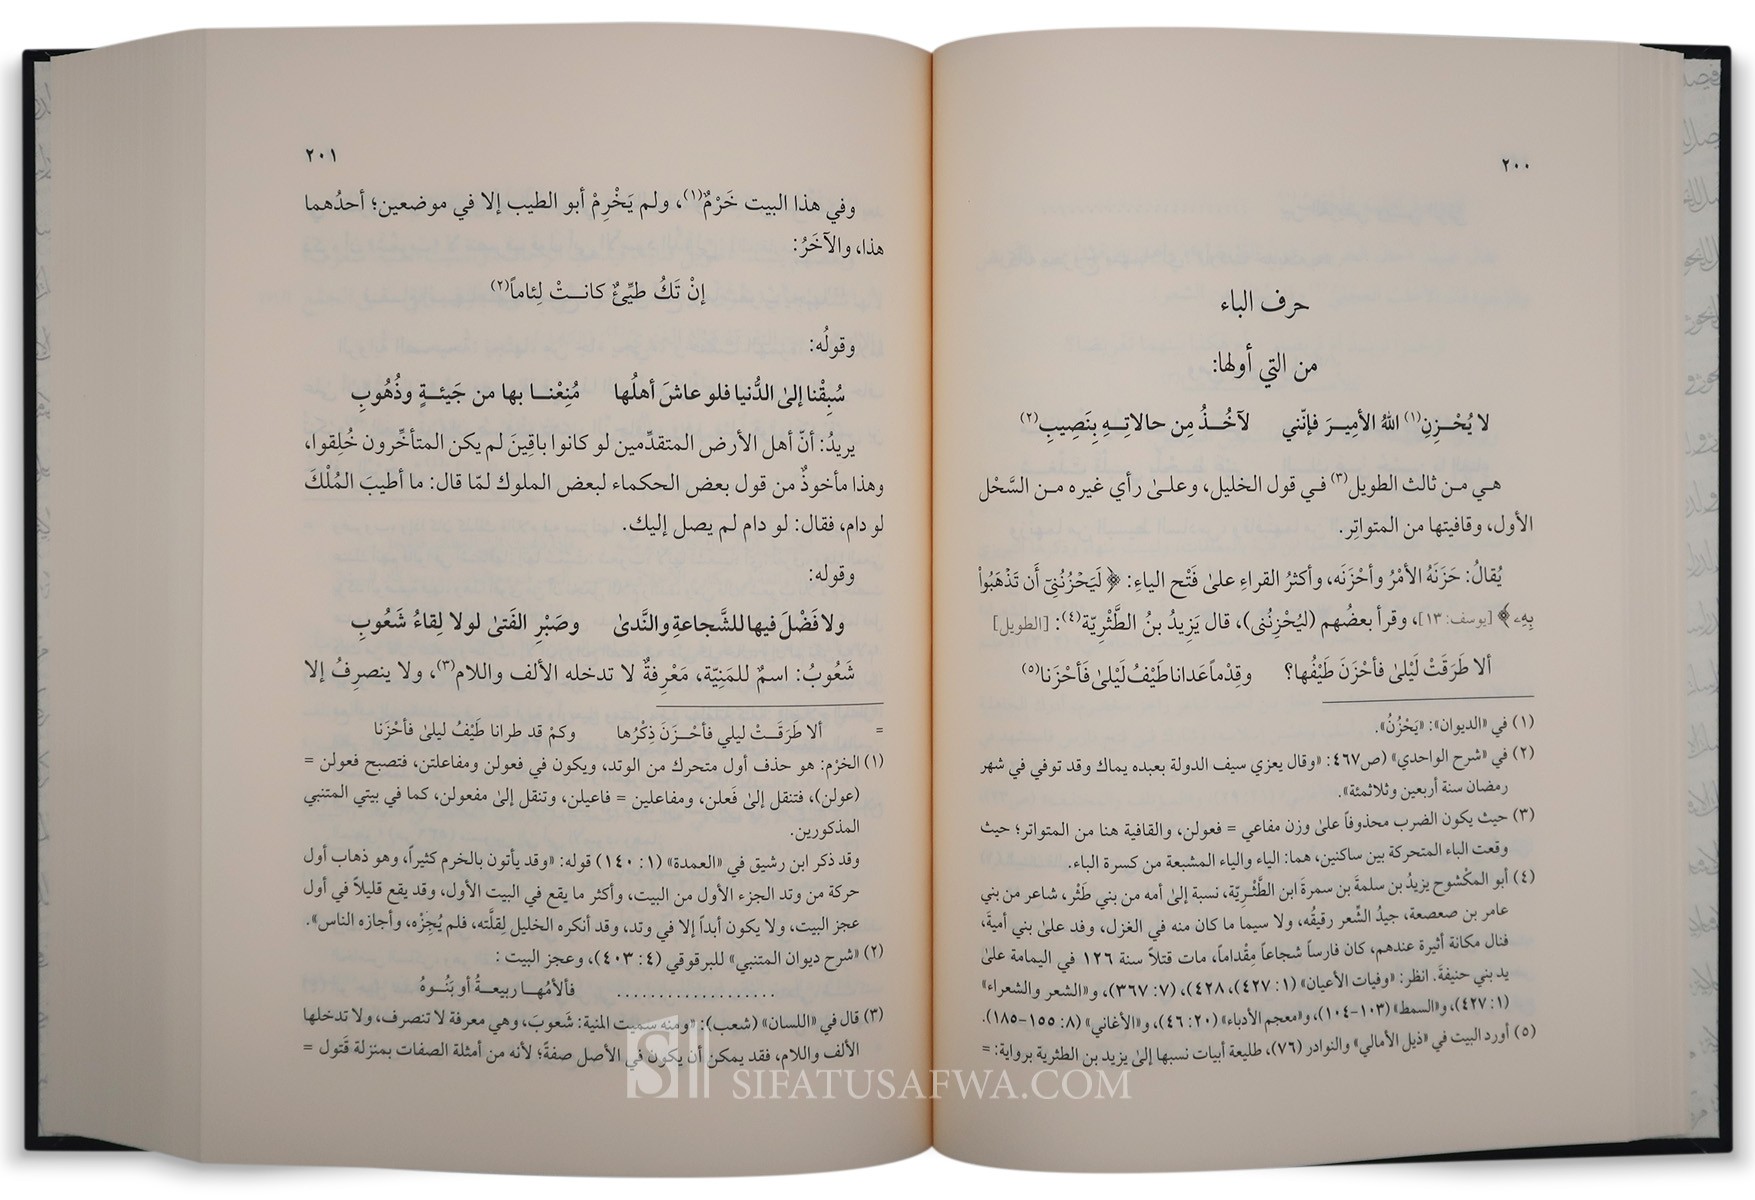 ٢٠٠
حرف الباء
من التي أولها:
لا يُحْـزِنِ(١) اللهُ الأمِيـرَ فإنّني لآخُــذُ مِن حالاتِــهِ بِنَصِيبِ(٢)
هـي مـن ثالث الطويل(٣) فـي قول الخليل، وعلـى رأي غيره مـن السَّحْل
الأول، وقافيتها من المتواتِر.
يُقالُ: حَزَنَهُ الأمْرُ وأحْزَنَه، وأكثرُ القراء على فَتْح الياءِ: ﴿ لَيَحْزُنُنِىٓ أَن تَذْهَبُوا۟
بِهِۦ ﴾ [يوسف: ١٣]، وقرأ بعضُهم (ليُحْزِنُنى)، قال يَزِيدُ بنُ الطَّثْرِيّة(٤): [الطويل]
ألا طَرَقَتْ لَيْلىٰ فأحْزَنَ طَيْفُها؟ وقِدْماً عَدانا طَيْفُ لَيْلىٰ فَأحْزَنا(٥)
(١) في «الديوان»: «يَحْزُنُ».
(٢) في «شرح الواحدي» (ص٤٦٧: «وقال يعزي سيف الدولة بعبده يماك وقد توفي في شهر
رمضان سنة أربعين وثلاثمئة».
(٣) حيث يكون الضرب محذوفاً علىٰ وزن مفاعي = فعولن، والقافية هنا من المتواتر؛ حيث
وقعت الباء المتحركة بين ساكنين، هما: الياء والياء المشبعة من كسرة الباء.
(٤) أبو المكْشوح يزيدُ بن سلمةَ بن سمرةَ ابن الطَّثْرِيّة، نسبة إلىٰ أمه من بني طَثْر، شاعر من بني
عامر بن صعصعة، جيدُ الشِّعر رقيقُه، ولا سيما ما كان منه في الغزل، وفد علىٰ بني أميةَ،
فنال مكانة أثيرة عندهم، كان فارساً شجاعاً مِقْداماً، مات قتلاً سنة ١٢٦ في اليمامة علىٰ
يد بني حنيفةَ. انظر: «وفيات الأعيان» (١: ٤٢٧)، ٤٢٨)، (٧: ٣٦٧)، و«الشعر والشعراء»
(١: ٤٢٧)، و«السمط» (١٠٣-١٠٤)، و«معجم الأدباء» (٢٠: ٤٦)، و«الأغاني» (٨: ١٥٥-١٨٥).
(٥) أورد البيت في «ذيل الأمالي» والنوادر (٧٦)، طليعة أبيات نسبها إلىٰ يزيد بن الطثرية برواية: =
٢٠١
وفي هذا البيت خَرْمٌ(١)، ولم يَخْرِمْ أبو الطيب إلا في موضعين؛ أحدُهما
هذا، والآخَرُ:
إنْ تَكُ طيِّئٌ كانــتْ لِئاماً(٢)
وقولُه:
سُبِقْنا إلىٰ الدُّنيا فلو عاشَ أهلُها مُنِعْنــا بها من جَيئــةٍ وذُهُوبِ
يريدُ: أنّ أهل الأرض المتقدِّمين لو كانوا باقِينَ لم يكن المتأخِّرون خُلِقوا،
وهذا مأخوذٌ من قول بعض الحكماء لبعض الملوك لمّا قال: ما أطيبَ المُلْكَ
لو دام، فقال: لو دام لم يصل إليك.
وقوله:
ولا فَضْلَ فيها للشَّجاعةِ والنَّدىٰ وصَبْرِ الفَتىٰ لولا لِقاءُ شَعُوبِ
شَعُوبُ: اسمٌ للمَنِيّة، مَعْرِفةٌ لا تدخله الألف واللام(٣)، ولا ينصرِفُ إلا
= ألا طَرَقَــتْ ليلي فأحْــزَنَ ذِكْرُها وكمْ قد طرانا طَيْفُ ليلىٰ فأحْزَنا
(١) الخرْم: هو حذف أول متحرك من الوتد، ويكون في فعولن ومفاعلتن، فتصبح فعولن =
(عولن)، فتنقل إلىٰ فَعلن، ومفاعلين = فاعيلن، وتنقل إلىٰ مفعولن، كما في بيتي المتنبي
المذكورين.
وقد ذكر ابن رشيق في «العمدة» (١: ١٤٠) قوله: «وقد يأتون بالخرم كثيراً، وهو ذهاب أول
حركة من وتد الجزء الأول من البيت، وأكثر ما يقع في البيت الأول، وقد يقع قليلاً في أول
عجز البيت، ولا يكون أبداً إلا في وتد، وقد أنكره الخليل لِقلَّته، فلم يُجِزْه، وأجازه الناس».
(٢) «شرح ديوان المتنبي» للبرقوقي (٤: ٤٠٣)، وعجز البيت :
................... فألأمُهــا ربيعــةُ أو بَنُــوهُ
(٣) قال في «اللسان» (شعب): «ومنه سميت المنية: شَعوبَ، وهي معرفة لا تنصرف، ولا تدخلها
الألف واللام، فقد يمكن أن يكون في الأصل صفةً؛ لأنه من أمثلة الصفات بمنزلة قَتول =
SIFATUSAFWA.COM